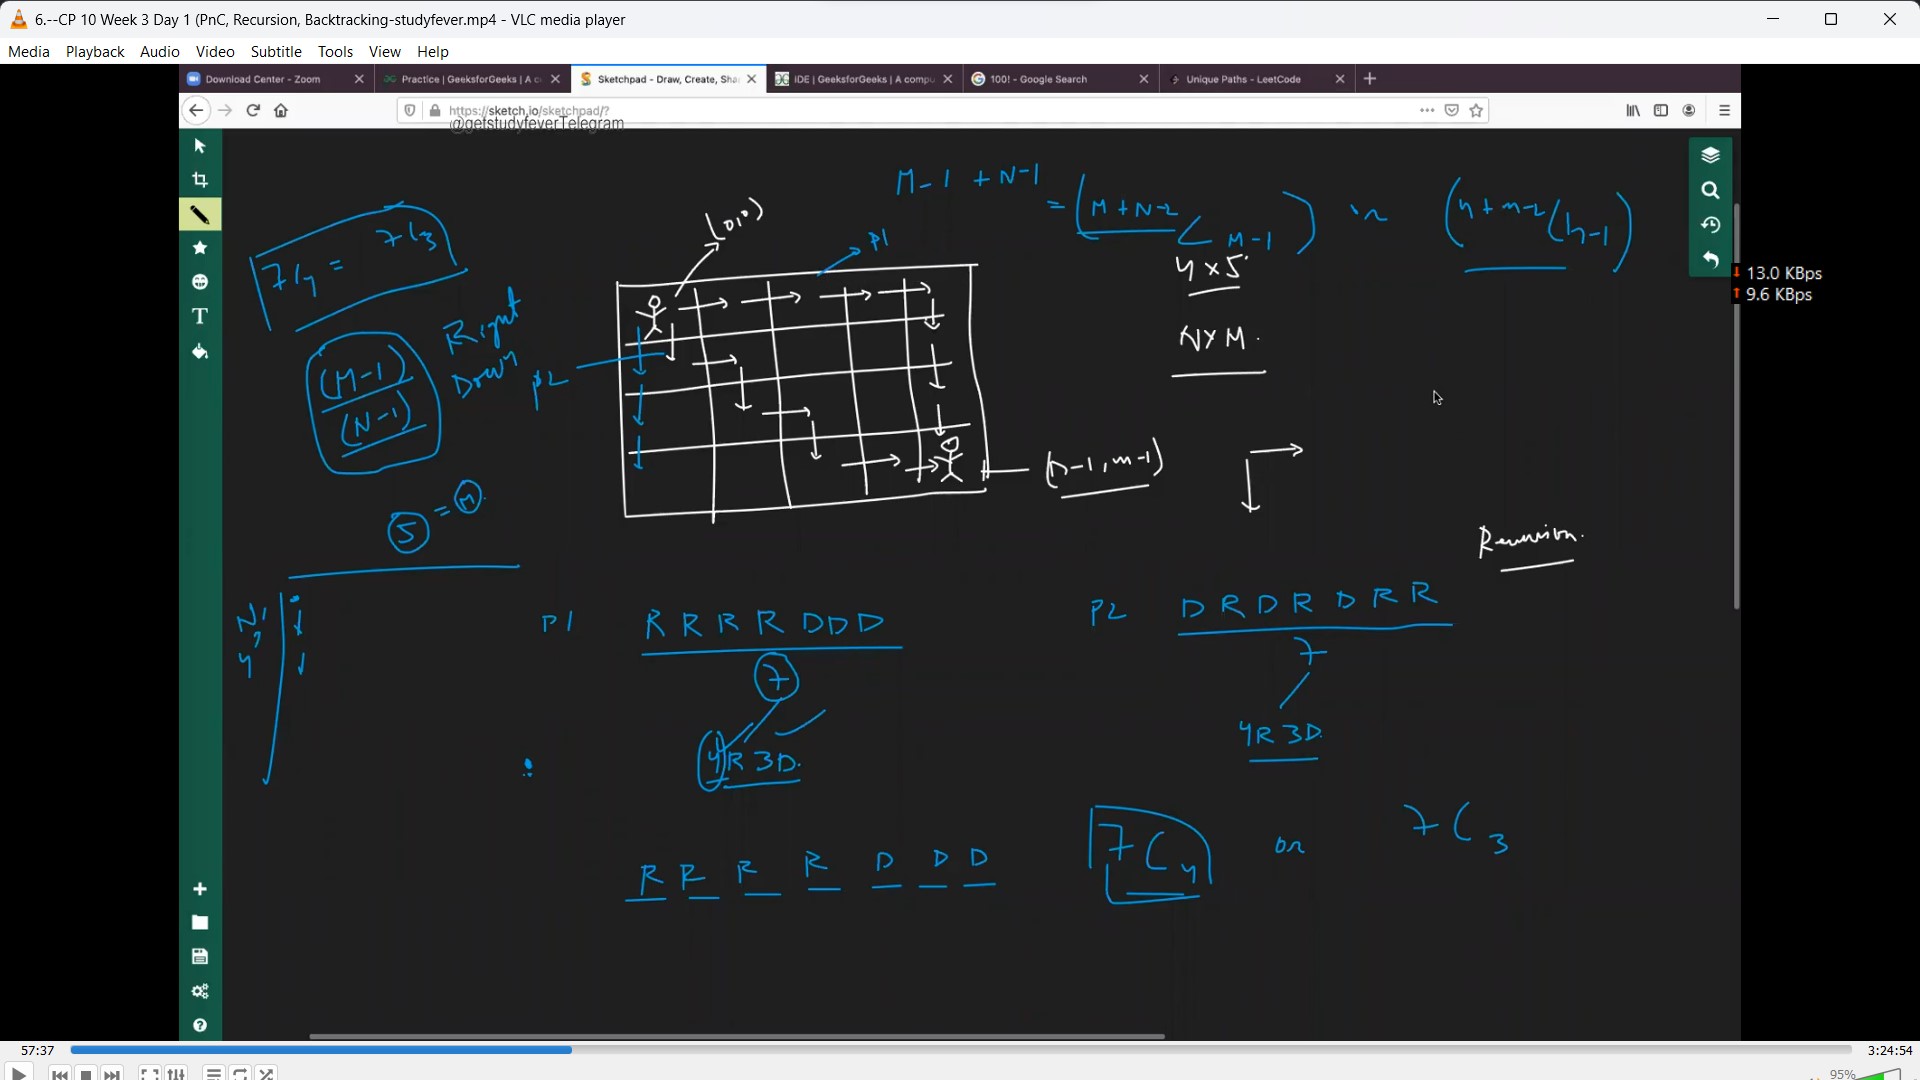 6.--CP 10 Week 3 Day 1 (PnC, Recursion, Backtracking-studyfever.mp4 - VLC media player
Media Playback Audio Video Subtitle Tools View Help
Download Center - Zoom
Practice | GeeksforGeeks | A c
Sketchpad - Draw, Create, Sha
IDE | GeeksforGeeks | A compu
100! - Google Search
Unique Paths - LeetCode
https://sketch.io/sketchpad/?
@getstudyfeverTelegram
M-1 + N-1
= (M+N-2 C M-1) or (n+m-2 C n-1)
7C4 = 7C3
(0,0)
P1
4 x 5
N x M.
13.0 KBps
9.6 KBps
Right
Down
(M-1)
(N-1)
P2
(n-1, m-1)
5 = M
Recursion.
N
4
P1 R R R R D D D
P2 D R D R D R R
7
7
4R 3D.
4R 3D.
R R R R D D D
7C4 or 7C3
T
57:37
3:24:54
95%